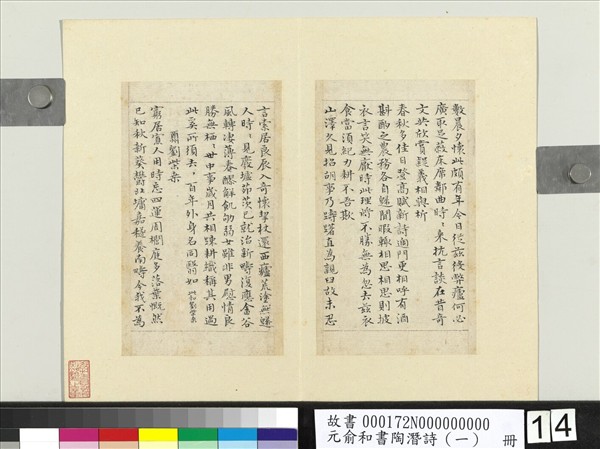 數晨夕懷此頗有年今日從茲役弊廬何必
廣取足蔽床席鄰曲時々來抗言談在昔奇
文共欣賞疑義相與析
春秋多佳日登高賦新詩過門更相呼有酒
斟酌之農務各自歸閒暇輒相思相思則披
衣言笑無厭時此理將不勝無為忽去茲衣
食當須紀力耕不吾欺
山澤久見招胡事乃躊躇直為親舊故未忍
言索居良辰入奇懷挈杖還西廬荒塗無歸
人時々見廢墟茆茨已就治新疇復應畬谷
風轉凄薄春醪解飢劬弱女雖非男慰情良
勝無栖々世中事歲月共相踈耕織稱其用過
此奚所須去々百年外身名同翳如 和劉柴桑
酬劉柴桑
窮居寡人用時忘四運周櫚庭多落葉慨然
已知秋新葵鬱北墉嘉穟養南疇今我不為
故書 000172N000000000
元俞和書陶潛詩（一） 冊
14